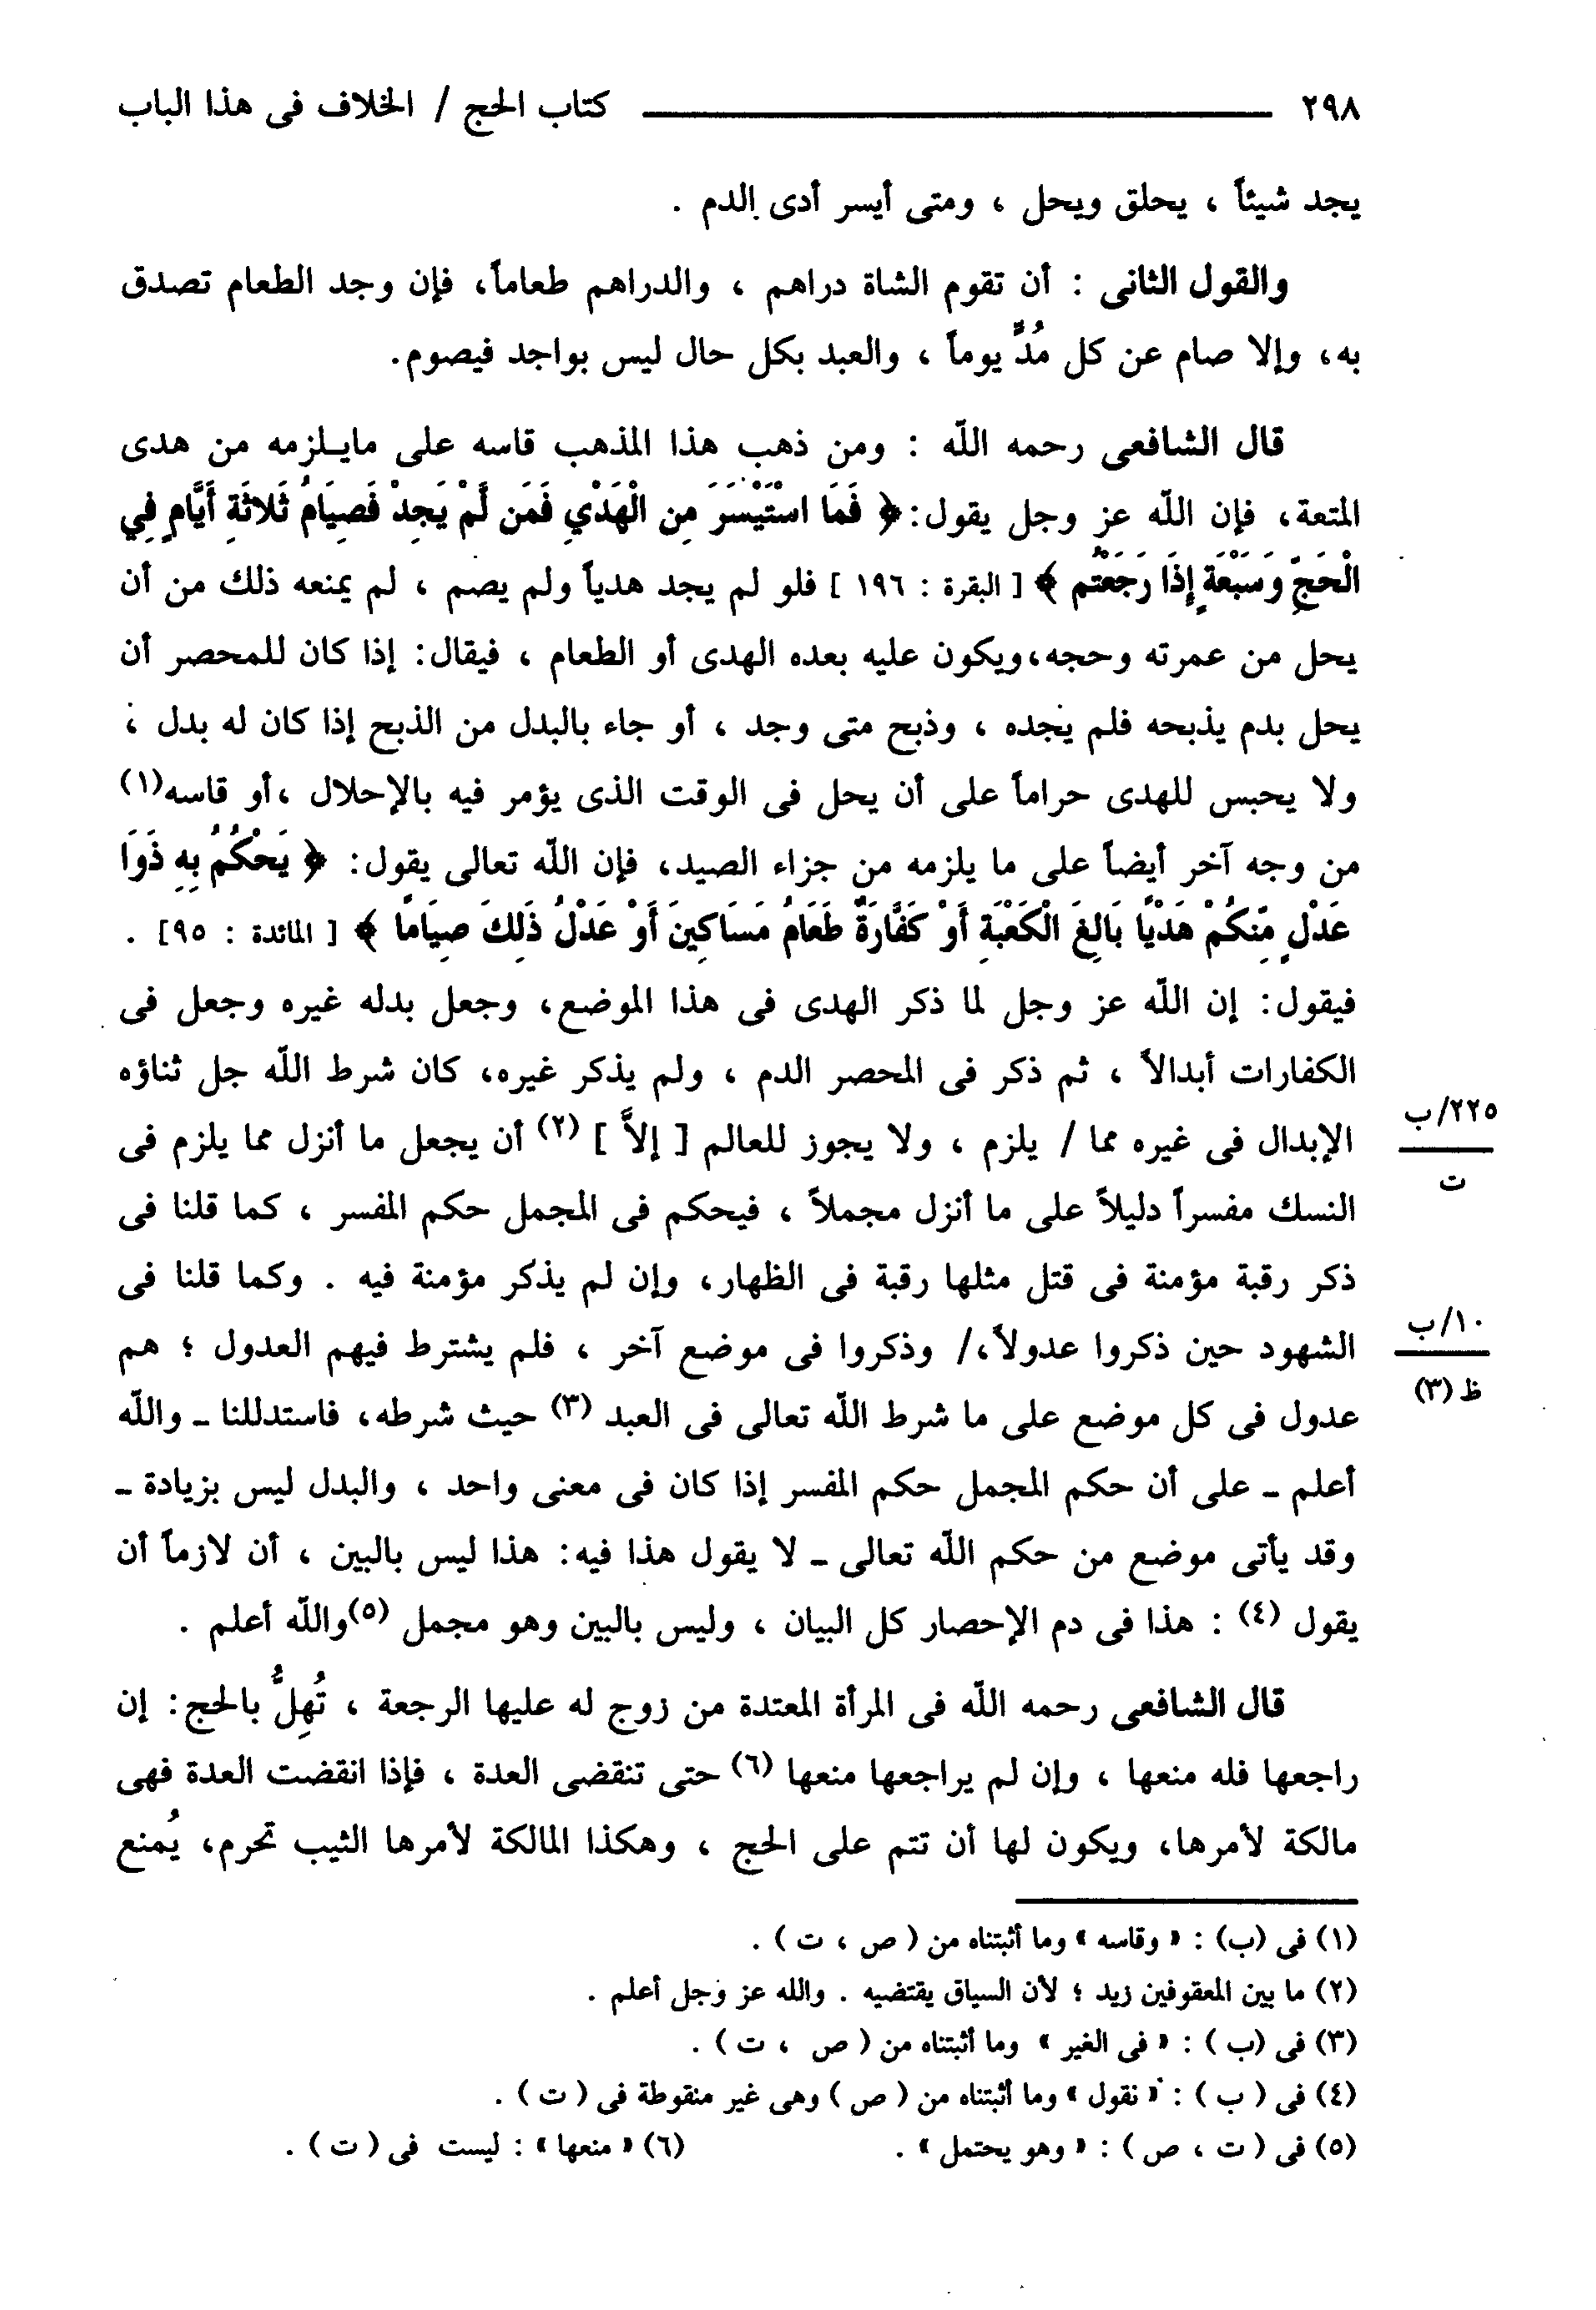 ٢٩٨ ــــــــــــــــــــــــــــــــــــــــ كتاب الحج / الخلاف فى هذا الباب
يجد شيئاً ، يحلق ويحل ، ومتى أيسر أدى الدم .
والقول الثانى : أن تقوم الشاة دراهم ، والدراهم طعاماً، فإن وجد الطعام تصدق
به، وإلا صام عن كل مُدٍّ يوماً ، والعبد بكل حال ليس بواجد فيصوم.
قال الشافعى رحمه اللّه : ومن ذهب هذا المذهب قاسه على مايـلزمه من هدى
المتعة، فإن اللّه عز وجل يقول: ﴿ فَمَا اسْتَيْسَرَ مِنَ الْهَدْيِ فَمَن لَّمْ يَجِدْ فَصِيَامُ ثَلاثَةِ أَيَّامٍ فِي
الْحَجِّ وَسَبْعَةٍ إِذَا رَجَعْتُمْ ﴾ [ البقرة : ١٩٦ ] فلو لم يجد هدياً ولم يصم ، لم يمنعه ذلك من أن
يحل من عمرته وحجه،ويكون عليه بعده الهدى أو الطعام ، فيقال: إذا كان للمحصر أن
يحل بدم يذبحه فلم يجده ، وذبح متى وجد ، أو جاء بالبدل من الذبح إذا كان له بدل ،
ولا يحبس للهدى حراماً على أن يحل فى الوقت الذى يؤمر فيه بالإحلال ،أو قاسه(١)
من وجه آخر أيضاً على ما يلزمه من جزاء الصيد، فإن اللّه تعالى يقول: ﴿ يَحْكُمُ بِهِ ذَوَا
عَدْلٍ مِّنكُمْ هَدْيًا بَالِغَ الْكَعْبَةِ أَوْ كَفَّارَةٌ طَعَامُ مَسَاكِينَ أَوْ عَدْلُ ذَلِكَ صِيَامًا ﴾ [ المائدة : ٩٥] .
فيقول: إن اللّه عز وجل لما ذكر الهدى فى هذا الموضع، وجعل بدله غيره وجعل فى
الكفارات أبدالاً ، ثم ذكر فى المحصر الدم ، ولم يذكر غيره، كان شرط اللّه جل ثناؤه
٢٢٥/ب
ت
الإبدال فى غيره مما / يلزم ، ولا يجوز للعالم [ إلاَّ ] (٢) أن يجعل ما أنزل مما يلزم فى
النسك مفسراً دليلاً على ما أنزل مجملاً ، فيحكم فى المجمل حكم المفسر ، كما قلنا فى
ذكر رقبة مؤمنة فى قتل مثلها رقبة فى الظهار، وإن لم يذكر مؤمنة فيه . وكما قلنا فى
١٠/ب
ظ (٣)
الشهود حين ذكروا عدولاً،/ وذكروا فى موضع آخر ، فلم يشترط فيهم العدول ؛ هم
عدول فى كل موضع على ما شرط اللّه تعالى فى العبد (٣) حيث شرطه، فاستدللنا ـ واللّه
أعلم ـ على أن حكم المجمل حكم المفسر إذا كان فى معنى واحد ، والبدل ليس بزيادة ـ
وقد يأتى موضع من حكم اللّه تعالى ـ لا يقول هذا فيه: هذا ليس بالبين ، أن لازماً أن
يقول (٤) : هذا فى دم الإحصار كل البيان ، وليس بالبين وهو مجمل (٥)واللّه أعلم .
قال الشافعى رحمه اللّه فى المرأة المعتدة من زوج له عليها الرجعة ، تُهِلُّ بالحج: إن
راجعها فله منعها ، وإن لم يراجعها منعها (٦) حتى تنقضى العدة ، فإذا انقضت العدة فهى
مالكة لأمرها، ويكون لها أن تتم على الحج ، وهكذا المالكة لأمرها الثيب تحرم، يُمنع
(١) فى (ب) : « وقاسه » وما أثبتناه من ( ص ، ت ) .
(٢) ما بين المعقوفين زيد ؛ لأن السياق يقتضيه . والله عز وجل أعلم .
(٣) فى (ب ) : « فى الغير » وما أثبتناه من ( ص ، ت ) .
(٤) فى ( ب ) : « نقول » وما أثبتناه من ( ص ) وهى غير منقوطة فى ( ت ) .
(٥) فى ( ت ، ص ) : « وهو يحتمل » . (٦) « منعها » : ليست فى ( ت ) .